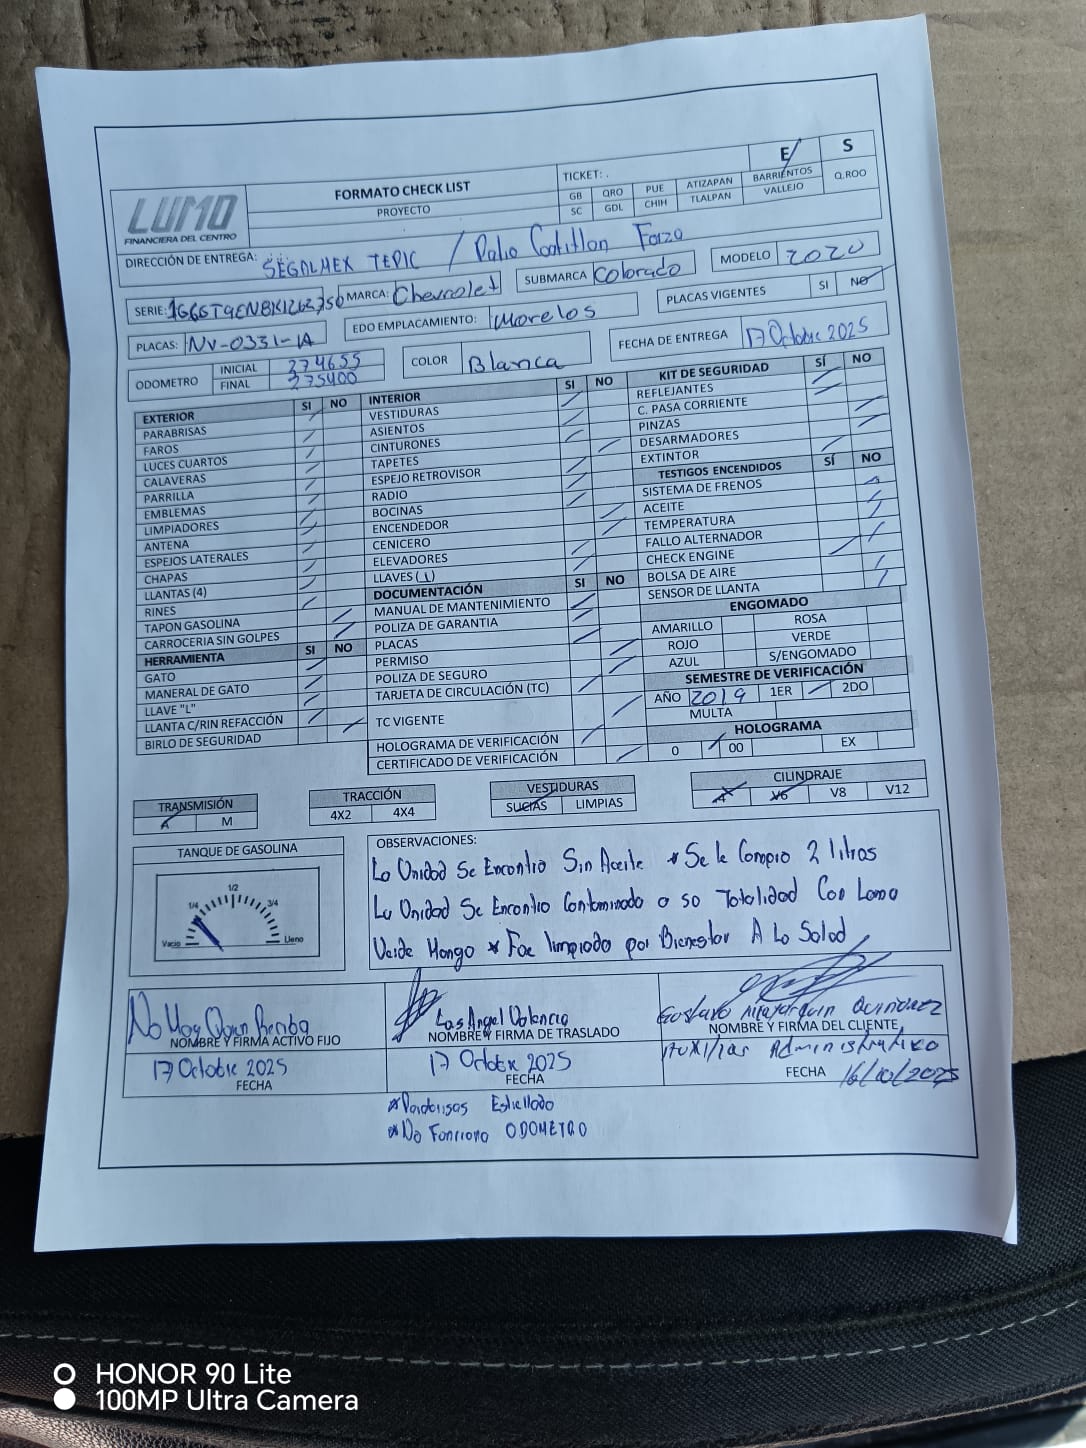 E S
TICKET: .
FORMATO CHECK LIST
GB QRO PUE ATIZAPAN BARRIENTOS Q.ROO
PROYECTO
SC GDL CHIH TLALPAN VALLEJO
LUMO
FINANCIERA DEL CENTRO
DIRECCIÓN DE ENTREGA: SEGALMEX TEPIC / Patio
SERIE: MARCA: Chevrolet SUBMARCA Colorado MODELO 2020
PLACAS: NV-0331-1A EDO EMPLACAMIENTO: Morelos PLACAS VIGENTES SI NO
ODOMETRO INICIAL 274655 COLOR Blanca FECHA DE ENTREGA 17 Octubre 2025
FINAL 275400
EXTERIOR SI NO
PARABRISAS
FAROS
LUCES CUARTOS
CALAVERAS
PARRILLA
EMBLEMAS
LIMPIADORES
ANTENA
ESPEJOS LATERALES
CHAPAS
LLANTAS (4)
RINES
TAPON GASOLINA
CARROCERIA SIN GOLPES
HERRAMIENTA SI NO
GATO
MANERAL DE GATO
LLAVE "L"
LLANTA C/RIN REFACCIÓN
BIRLO DE SEGURIDAD
INTERIOR SI NO
VESTIDURAS
ASIENTOS
CINTURONES
TAPETES
ESPEJO RETROVISOR
RADIO
BOCINAS
ENCENDEDOR
CENICERO
ELEVADORES
LLAVES (1)
DOCUMENTACIÓN SI NO
MANUAL DE MANTENIMIENTO
POLIZA DE GARANTIA
PLACAS
PERMISO
POLIZA DE SEGURO
TARJETA DE CIRCULACIÓN (TC)
TC VIGENTE
HOLOGRAMA DE VERIFICACIÓN
CERTIFICADO DE VERIFICACIÓN
KIT DE SEGURIDAD SÍ NO
REFLEJANTES
C. PASA CORRIENTE
PINZAS
DESARMADORES
EXTINTOR
TESTIGOS ENCENDIDOS SÍ NO
SISTEMA DE FRENOS
ACEITE
TEMPERATURA
FALLO ALTERNADOR
CHECK ENGINE
BOLSA DE AIRE
SENSOR DE LLANTA
ENGOMADO
AMARILLO ROSA
ROJO VERDE
AZUL S/ENGOMADO
SEMESTRE DE VERIFICACIÓN
AÑO 2019 1ER 2DO
MULTA
HOLOGRAMA
0 00 EX
TRANSMISIÓN
A M
TRACCIÓN
4X2 4X4
VESTIDURAS
SUCIAS LIMPIAS
CILINDRAJE
4 V6 V8 V12
TANQUE DE GASOLINA
1/2
1/4 3/4
Vacio Lleno
OBSERVACIONES:
La Unidad Se Encontro Sin Aceite * Se le Compro 2 litros
La Unidad Se Encontro Contaminada a so Totalidad Con Lama
Verde Hongo * Foe limpiado por Bienestar A La Salod
No Hay Quien Reciba
NOMBRE Y FIRMA ACTIVO FIJO
17 Octobre 2025
FECHA
Angel Valencia
NOMBRE Y FIRMA DE TRASLADO
17 Octobre 2025
FECHA
Gustavo
NOMBRE Y FIRMA DEL CLIENTE
Auxiliar Administrativo
FECHA 16/10/2025
Estrellado
*No Fonciona ODOMETRO
HONOR 90 Lite
100MP Ultra Camera